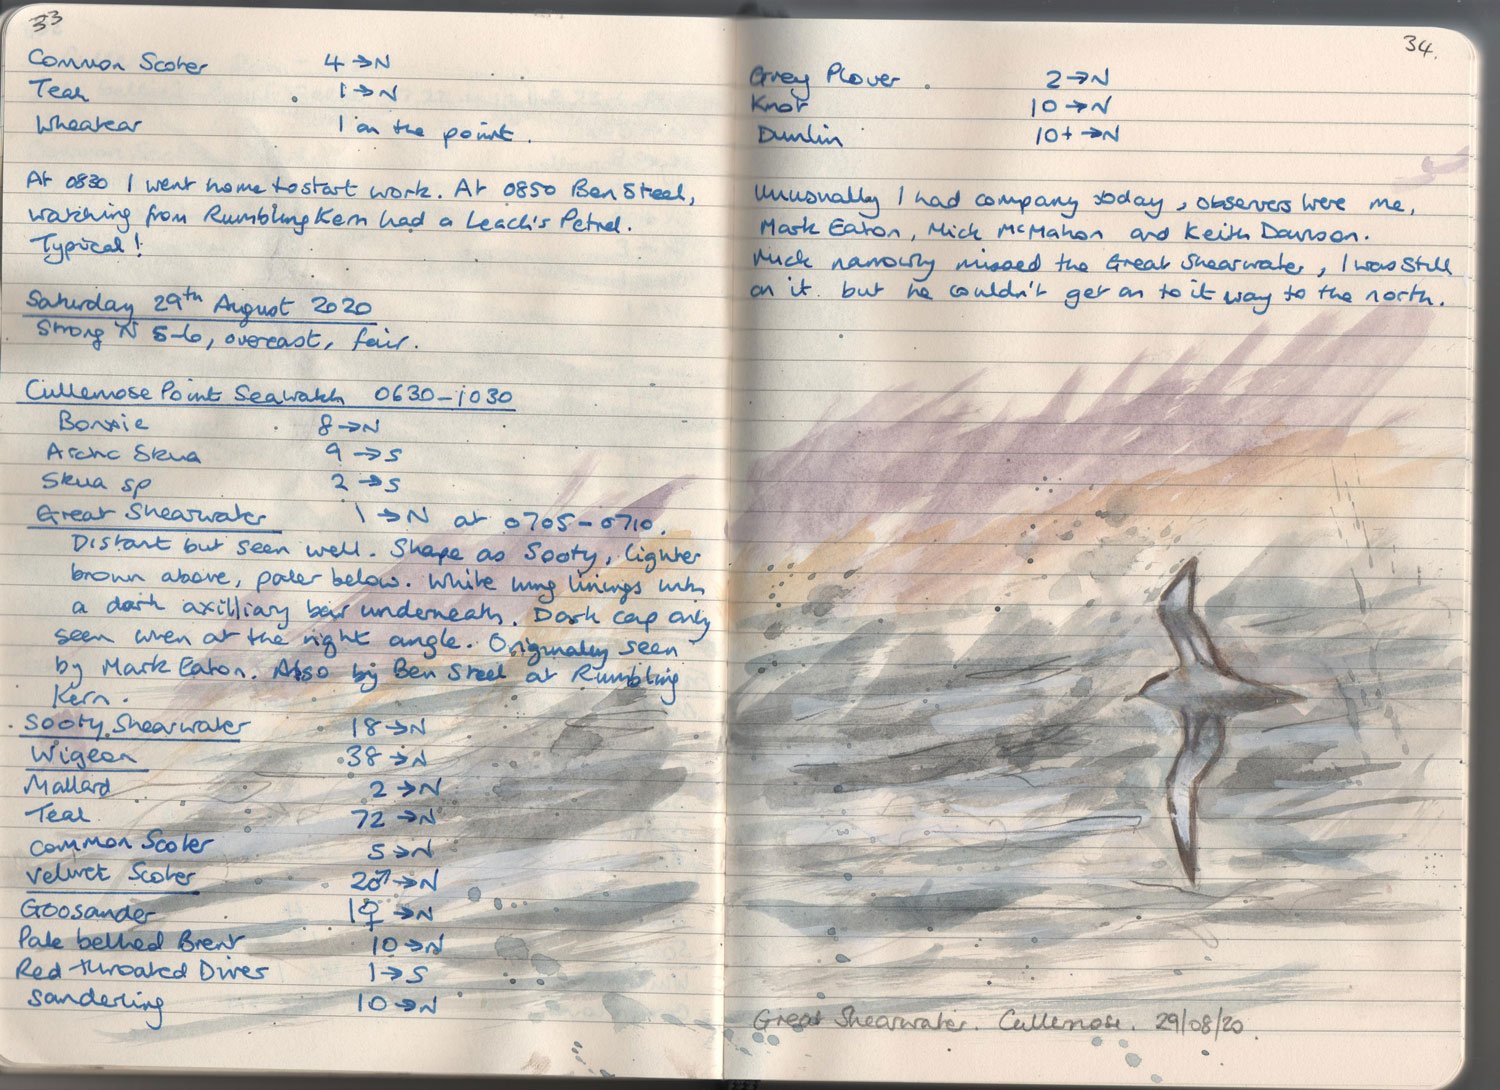 33
Common Scoter 4→N
Teal 1→N
Wheatear 1 on the point.
At 0830 I went home to start work. At 0850 Ben Steel,
watching from Rumbling Kern had a Leach's Petrel.
Typical!
Saturday 29th August 2020
Strong N 5-6, overcast, fair.
Cullernose Point Seawatch 0630-1030
Bonxie 8→N
Arctic Skua 9→S
Skua sp 2→S
Great Shearwater 1→N at 0705-0710.
Distant but seen well. Shape as Sooty, lighter
brown above, paler below. White wing linings with
a dark axilliary bar underneath. Dark cap only
seen when at the right angle. Originally seen
by Mark Eaton. Also by Ben Steel at Rumbling
Kern.
Sooty Shearwater 18→N
Wigeon 38→N
Mallard 2→N
Teal 72→N
Common Scoter 5→N
Velvet Scoter 2♂→N
Goosander 1♀→N
Pale bellied Brent 10→N
Red-throated Diver 1→S
Sanderling 10→N
34.
Grey Plover 2→N
Knot 10→N
Dunlin 10+→N
Unusually I had company today, observers were me,
Mark Eaton, Mick McMahon and Keith Davison.
Mick narrowly missed the Great Shearwater, I was still
on it but he couldn't get on to it way to the north.
Great Shearwater. Cullernose. 29/08/20